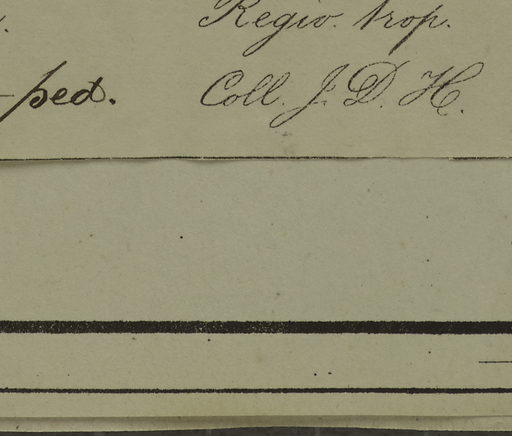 Regio. trop.
-ped. Coll. J. D. H.